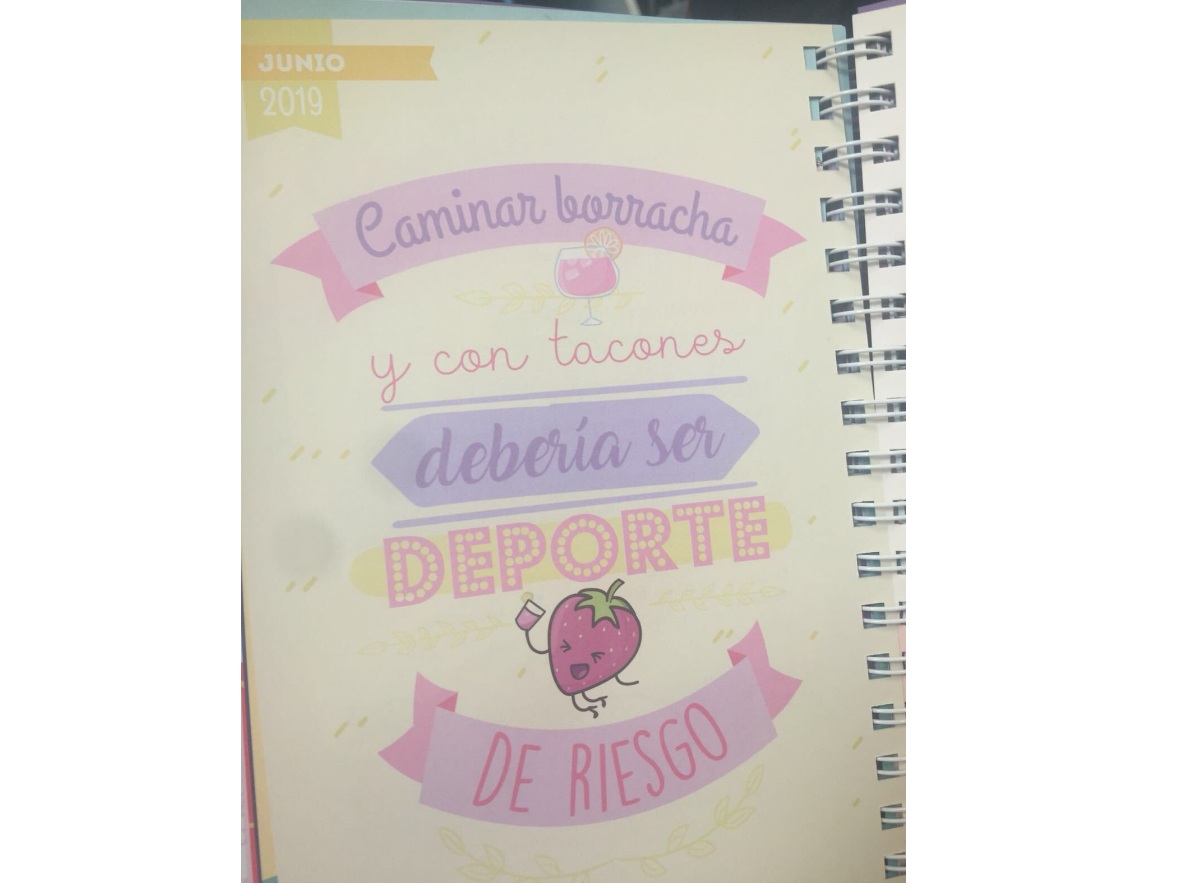 JUNIO
2019
Caminar borracha
y con tacones
debería ser
DEPORTE
DE RIESGO